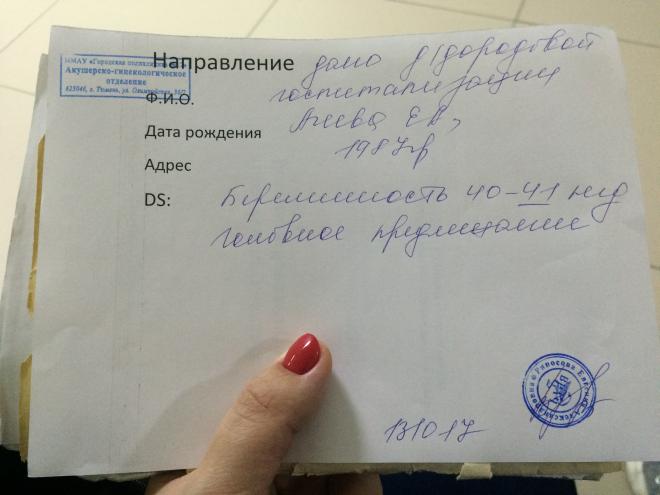 ММАУ «Городская поликлиника
Акушерско-гинекологическое
отделение
625046, г. Тюмень, ул. Олимпийская,
Направление дано д/дородовой
госпитализации
Ф.И.О.
Дата рождения
1987гр
Адрес
DS: Беременность 40-41 нед
головное предлежание
131017